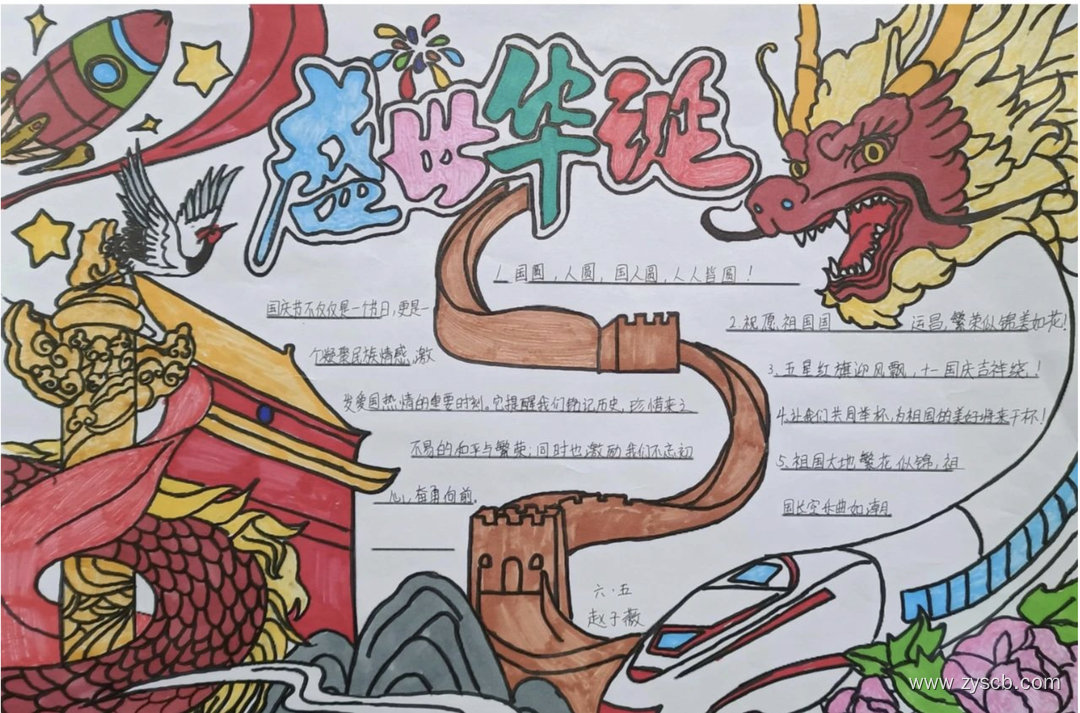 盛世华诞
国庆节不仅仅是一个节日,更是一
个凝聚民族情感,激
发爱国热情的重要时刻。它提醒我们铭记历史,珍惜来之
不易的和平与繁荣,同时也激励我们不忘初
心,奋勇向前。
1.国圆,人圆,国人圆,人人皆圆!
2.祝愿祖国国 运昌,繁荣似锦美如花!
3.五星红旗迎风飘,十一国庆吉祥绕!
4.让我们共同举杯,为祖国的美好将来干杯!
5.祖国大地繁花似锦,祖
国长空乐曲如潮
六.五
赵子薇
www.zyscb.com